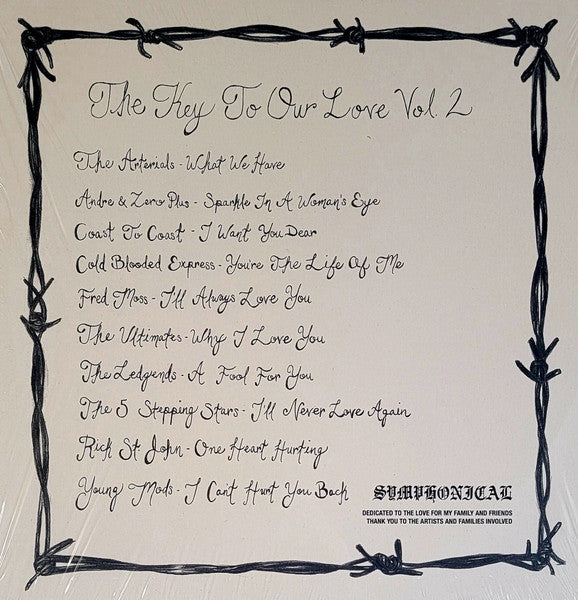 The Key To Our Love Vol. 2
The Arterials - What We Have
Andre & Zero Plus - Sparkle In A Woman's Eye
Coast To Coast - I Want You Dear
Cold Blooded Express - You're The Life Of Me
Fred Moss - I'll Always Love You
The Ultimates - Why I Love You
The Ledgends - A Fool For You
The 5 Stepping Stars - I'll Never Love Again
Rick St. John - One Heart Hurting
Young Mods - I Can't Hurt You Back
SYMPHONICAL
DEDICATED TO THE LOVE FOR MY FAMILY AND FRIENDS
THANK YOU TO THE ARTISTS AND FAMILIES INVOLVED